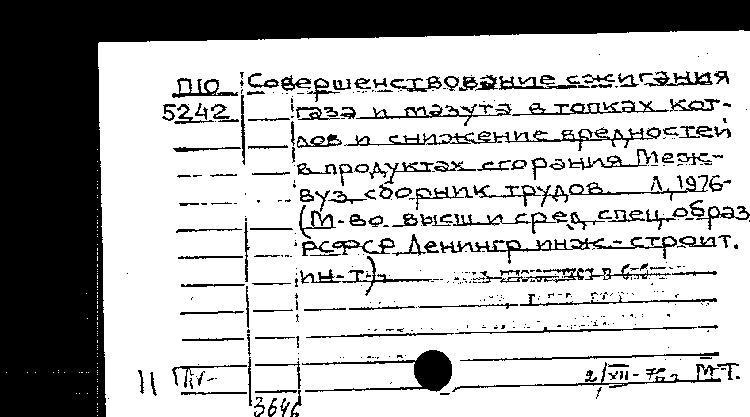 П10 Совершенствование сжигания
5242 газа и мазута в топках кот-
лов и снижение вредностей
в продуктах сгорания Меж-
вуз сборник трудов. Л, 1976-
(М-во высш и сред спец образ
РСФСР Ленингр инж-строит.
ин-т).
2/XII-76г М.Т.
3646